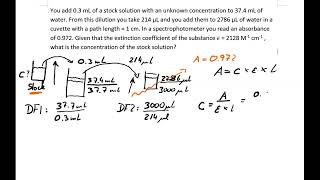 You add 0.3 mL of a stock solution with an unknown concentration to 37.4 mL of
water. From this dilution you take 214 µL and you add them to 2786 µL of water in a
cuvette with a path length = 1 cm. In a spectrophotometer you read an absorbance
of 0.972. Given that the extinction coefficient of the substance ε = 2128 M⁻¹ cm⁻¹ ,
what is the concentration of the stock solution?
C? 0.3 mL 214 µl A = 0.972
Stock 37.4 mL 2786 µl A = C × ε × L
37.7 mL 3000 µl
DF1: 37.7 mL / 0.3 mL DF2: 3000 µl / 214 µl C = A / ε × L = 0.